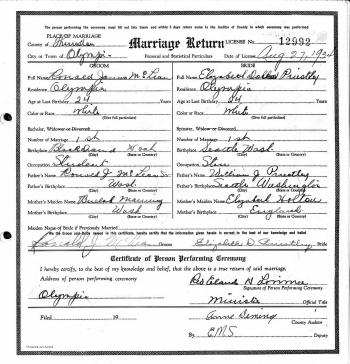 The person performing ceremony must fill out this form and return within 30 days after same to the auditor of County in which ceremony was performed.
PLACE OF MARRIAGE
County of Thurston
City or Town of Olympia
Marriage Return
LICENSE No. 12992
Personal and Statistical Particulars
Date of License Aug 27, 1934
GROOM
BRIDE
Full Name Ronald James McLean
Full Name Elizabeth Priestly
Residence Olympia
Residence Olympia
Age at Last Birthday 24
Age at Last Birthday 24
Color or Race White
Color or Race White
Bachelor, Widower or Divorced
Spinster, Widowed or Divorced
Number of Marriage 1st
Number of Marriage 1st
Birthplace Wash
Birthplace Seattle Wash.
(State or Country)
(State or Country)
Occupation Student
Occupation
Father's Name J. McLean Sr
Father's Name William J. Priestly
Father's Birthplace Wash.
Father's Birthplace Seattle Washington
(State or Country)
(State or Country)
Mother's Maiden Name Beulah Manning
Mother's Maiden Name Elizabeth Holton
Mother's Birthplace Wash
Mother's Birthplace England
(State or Country)
(State or Country)
Maiden Name of Bride if Previously Married
We the Groom and Bride named in this certificate, hereby certify that the information given therein is correct to the best of our knowledge and belief
Ronald J. McLean Groom
Elizabeth D. Priestly Bride
Certificate of Person Performing Ceremony
I hereby certify, to the best of my knowledge and belief, that the above is a true return of said marriage.
Address of person performing ceremony
Signature of Person Performing Ceremony
Olympia
Minister
Official Title
Filed 19
County Auditor
By E.M.S.
Deputy